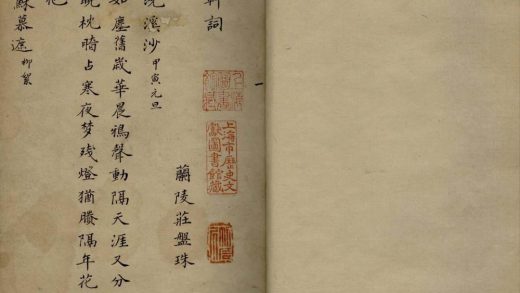 上海市歷史文
獻圖書館藏
詞
蘭陵莊盤珠
浣溪沙 甲寅元旦
如塵舊歲華晨鴉聲動隔天涯又分
枕暗占寒夜梦残燈猶賸隔年花
蘇慕遮 柳絮